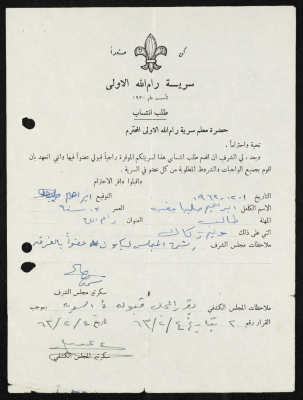 كن مستعداً
سرية رام الله الاولى
تأسست عام ١٩٢٠
طلب انتساب
حضرة معلم سرية رام الله الاولى المحترم
تحية واحتراماً ،
وبعد ، لي الشرف ان اقدم طلب انتسابي هذا لسريتكم الموقرة راجياً قبولي عضواً فيها وانني اتعهد بان
اقوم بجميع الواجبات والشروط المطلوبة من كل عضو في السرية .
واقبلوا وافر الاحترام
التاريخ ١٩٦٢ التوقيع ابراهيم
الاسم الكامل ابراهيم العمر سنة
المهنة طالب العنوان رام الله
انني على ذلك
ملاحظات مجلس الشرف
سكرتير مجلس الشرف
ملاحظات المجلس الكشفي يقرر المجلس قبوله في السرية بموجب
القرار رقم ٢ بتاريخ ٦٣/٢/٤ تاريخ ٦٣/٢/٤
سكرتير المجلس الكشفي